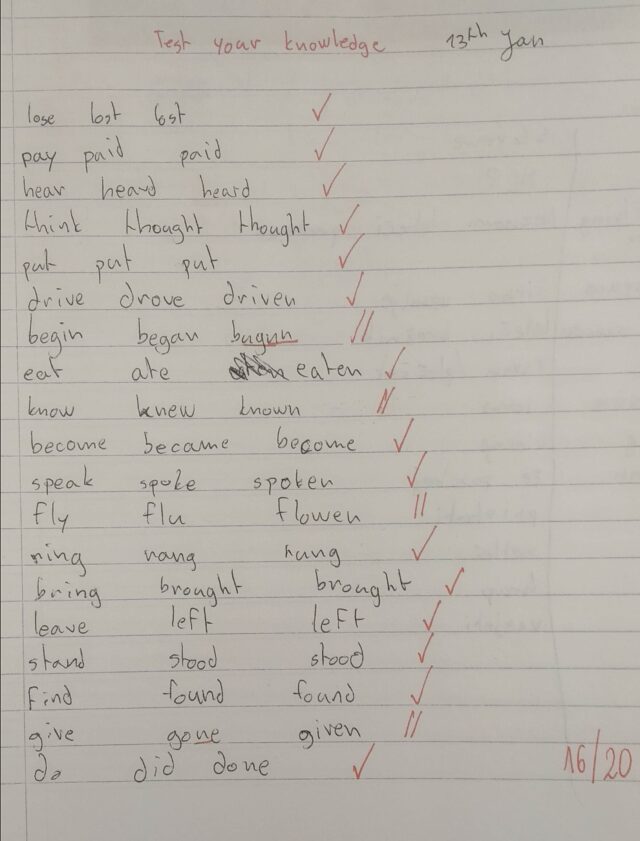 Test your knowledge 13th Jan
lose lost lost ✓
pay paid paid ✓
hear heard heard ✓
think thought thought ✓
put put put ✓
drive drove driven ✓
begin began bugun //
eat ate eaten ✓
know knew known //
become became become ✓
speak spoke spoken ✓
fly flu flowen //
ring rang rung ✓
bring brought brought ✓
leave left left ✓
stand stood stood ✓
find found found ✓
give gone given //
do did done ✓ 16/20